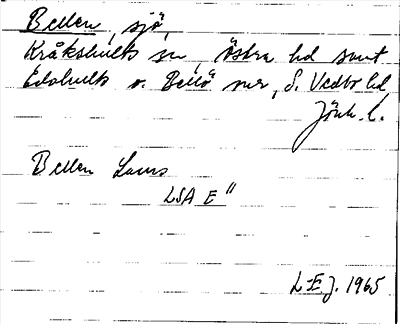 Bellen, sjö,
Kråkshults sn, Östra hd samt
Edshults o. Bellö snr, S. Vedbo hd,
Jönk. l.
Bellen Lams
LSA E"
L-E J. 1965